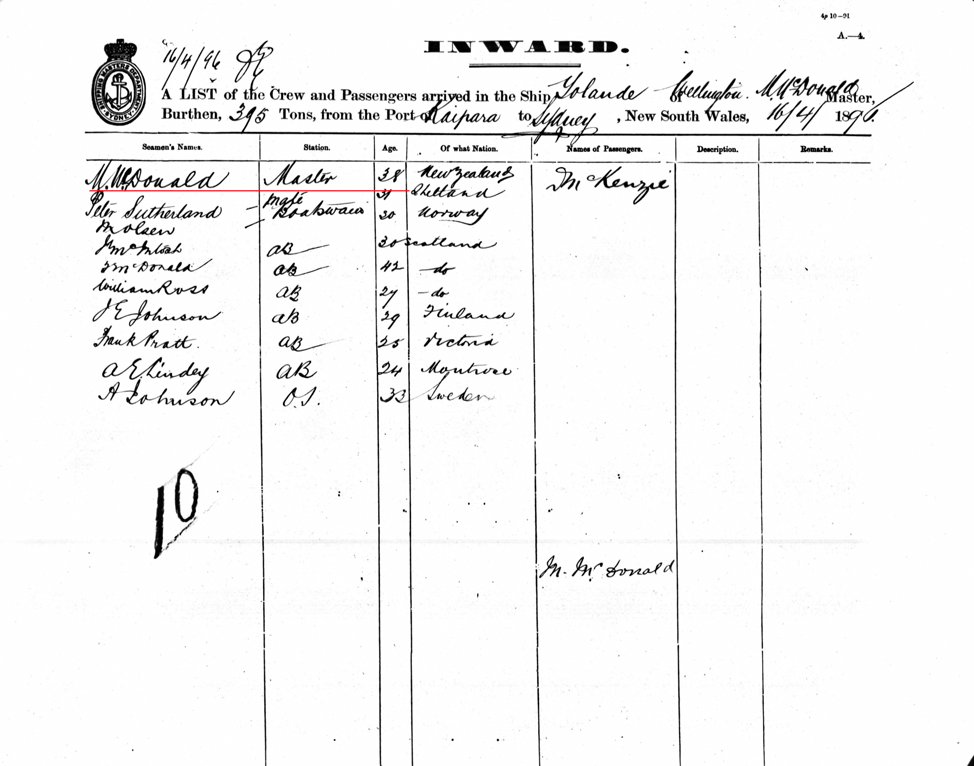 4p 10-91
A.—4.
16/4/96
INWARD.
SHIPPING MASTERS DEPARTMENT SYDNEY
A LIST of the Crew and Passengers arrived in the Ship Yolande of Wellington. M. McDonald Master,
Burthen, 395 Tons, from the Port of Kaipara to Sydney, New South Wales, 16/4/ 1896.
Seamen's Names. Station. Age. Of what Nation. Names of Passengers. Description. Remarks.
M. McDonald Master 38 New Zealand J McKenzie
Peter Sutherland mate 31 Shetland
M Olsen Boatswain 30 Norway
McIntosh AB 30 Scotland
J McDonald AB 42 - do
William Ross AB 27 - do
J E Johnson AB 29 Finland
Frank Pratt. AB 25 Victoria
A E Lindey AB 24 Montrose
A Johnson O.S. 33 Sweden
10
M. McDonald